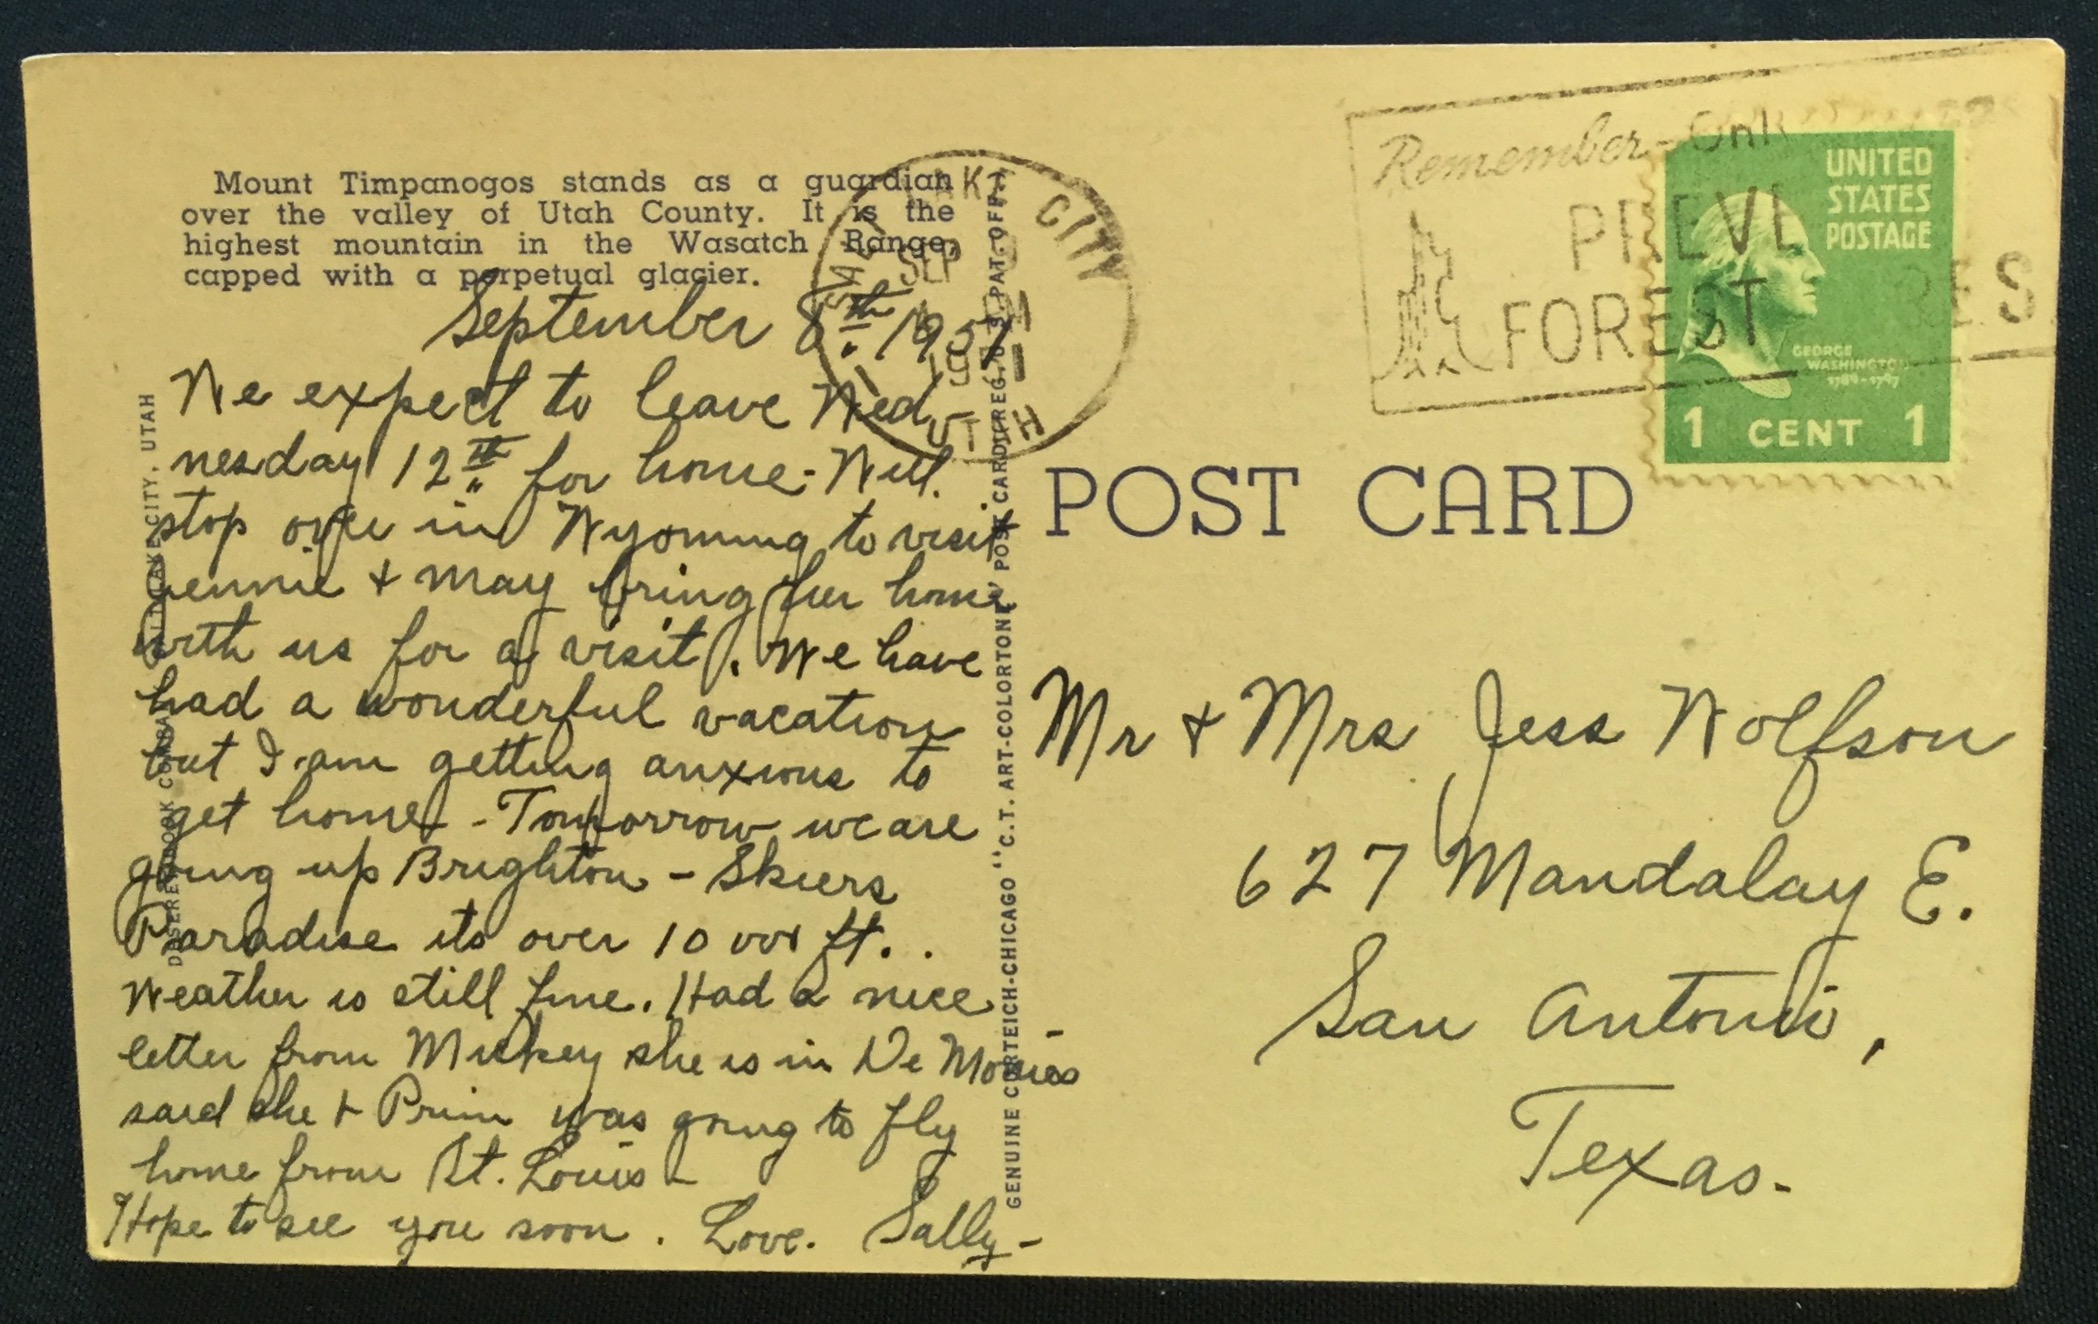 Mount Timpanogos stands as a guardian
over the valley of Utah County. It is the
highest mountain in the Wasatch Range,
capped with a perpetual glacier.
September 8th 1951
We expect to leave Wed
nesday 12th for home - Will
stop over in Wyoming to visit
Jennie + may bring her home
with us for a visit. We have
had a wonderful vacation
but I am getting anxious to
get home - Tomorrow we are
going up Brighton - Skiers
Paradise its over 10 000 ft. .
Weather is still fine. Had a nice
letter from Mickey she is in De Moines
said she + Prim was going to fly
home from St. Louis -
Hope to see you soon. Love. Sally -
CITY
SEP
1951
UTAH
Remember - Only
PREVE
FOREST RES
UNITED
STATES
POSTAGE
GEORGE
WASHINGTON
1789-1797
1 CENT 1
POST CARD
Mr + Mrs Jess Wolfson
627 Mandalay E.
San Antonio,
Texas.
GENUINE CURTEICH-CHICAGO "C.T. ART-COLORTONE" POST CARD (REG. U.S. PAT. OFF.)
DESERET BOOK COMPANY, SALT LAKE CITY, UTAH